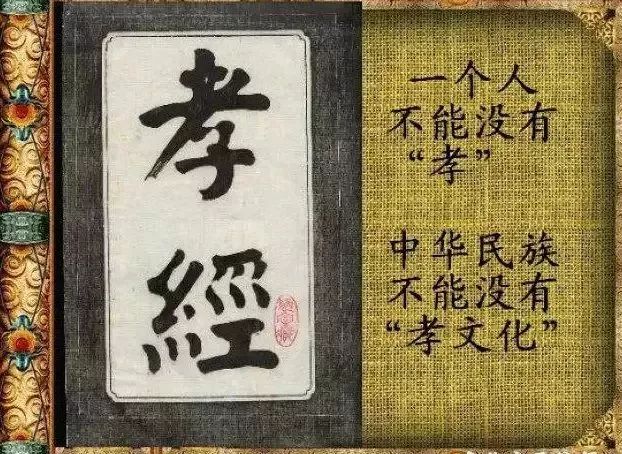 孝經
一个人
不能没有
“孝”
中华民族
不能没有
“孝文化”